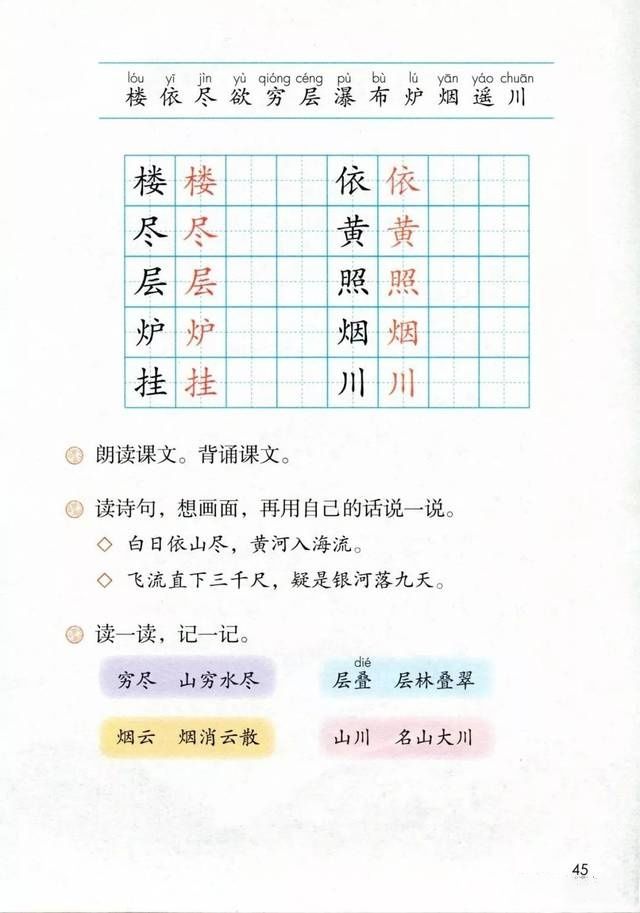 lóu yī jìn yù qióng céng pù bù lú yān yáo chuān
楼 依 尽 欲 穷 层 瀑 布 炉 烟 遥 川
楼 楼 依 依
尽 尽 黄 黄
层 层 照 照
炉 炉 烟 烟
挂 挂 川 川
朗读课文。背诵课文。
读诗句，想画面，再用自己的话说一说。
◇ 白日依山尽，黄河入海流。
◇ 飞流直下三千尺，疑是银河落九天。
读一读，记一记。
dié
穷尽 山穷水尽 层叠 层林叠翠
烟云 烟消云散 山川 名山大川
45